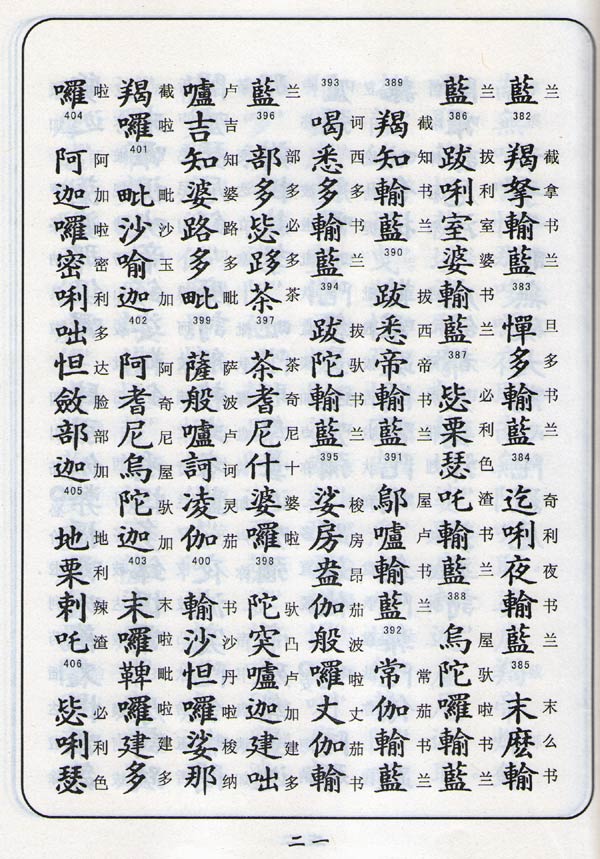 藍 382 羯拏輸藍 383 憚多輸藍 384 迄唎夜輸藍 385 末麼輸
兰 截拿书兰 旦多书兰 奇利夜书兰 末么书
藍 386 跋唎室婆輸藍 387 毖栗瑟吒輸藍 388 烏陀囉輸藍
兰 拔利室婆书兰 必利色渣书兰 屋驮啦书兰
389 羯知輸藍 390 跋悉帝輸藍 391 鄔嚧輸藍 392 常伽輸藍
截知书兰 拔西帝书兰 屋卢书兰 常茄书兰
393 喝悉多輸藍 394 跋陀輸藍 395 娑房盎伽般囉丈伽輸
诃西多书兰 拔驮书兰 梭房昂茄波啦丈茄书
藍 396 部多毖跢茶 397 茶耆尼什婆囉 398 陀突嚧迦建咄
兰 部多必多茶 茶奇尼十婆啦 驮凸卢加建多
嚧吉知婆路多毗 399 薩般嚧訶凌伽 400 輸沙怛囉娑那
卢吉知婆路多毗 萨波卢诃灵茄 书沙丹啦梭纳
羯囉 401 毗沙喻迦 402 阿耆尼烏陀迦 403 末囉鞞囉建多
截啦 毗沙玉加 阿奇尼屋驮加 末啦毗啦建多
囉 404 阿迦囉密唎咄怛斂部迦 405 地栗剌吒 406 毖唎瑟
啦 阿加啦密利多达脸部加 地利辣渣 必利色
二一